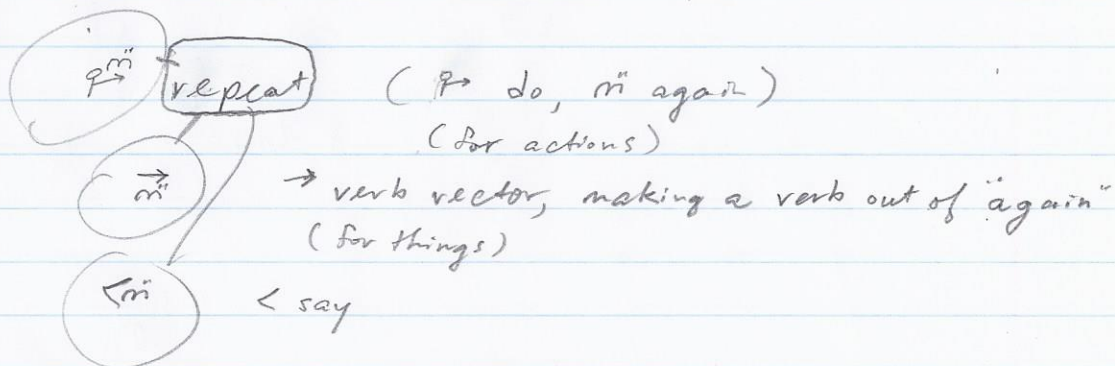 repeat ( do, again)
(for actions)
→ verb vector, making a verb out of "again"
(for things)
< < say